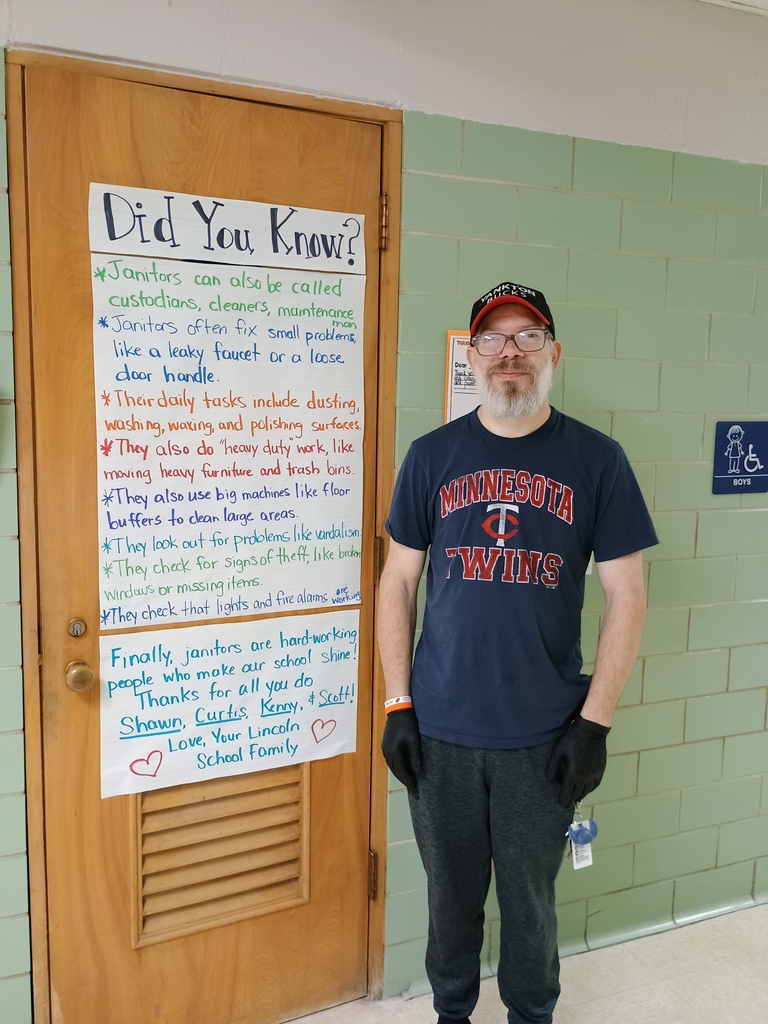 Did You Know?
*Janitors can also be called
custodians, cleaners, maintenance
man
*Janitors often fix small problems,
like a leaky faucet or a loose
door handle.
*Their daily tasks include dusting,
washing, waxing, and polishing surfaces.
*They also do "heavy duty" work, like
moving heavy furniture and trash bins.
*They also use big machines like floor
buffers to clean large areas.
*They look out for problems like vandalism.
*They check for signs of theft, like broken
windows or missing items.
*They check that lights and fire alarms are
working
Finally, janitors are hard-working
people who make our school shine!
Thanks for all you do
Shawn, Curtis, Kenny, & Scott!
Love, Your Lincoln
School Family
YANKTON
BUCKS
Dear
MINNESOTA
TC
TWINS
BOYS